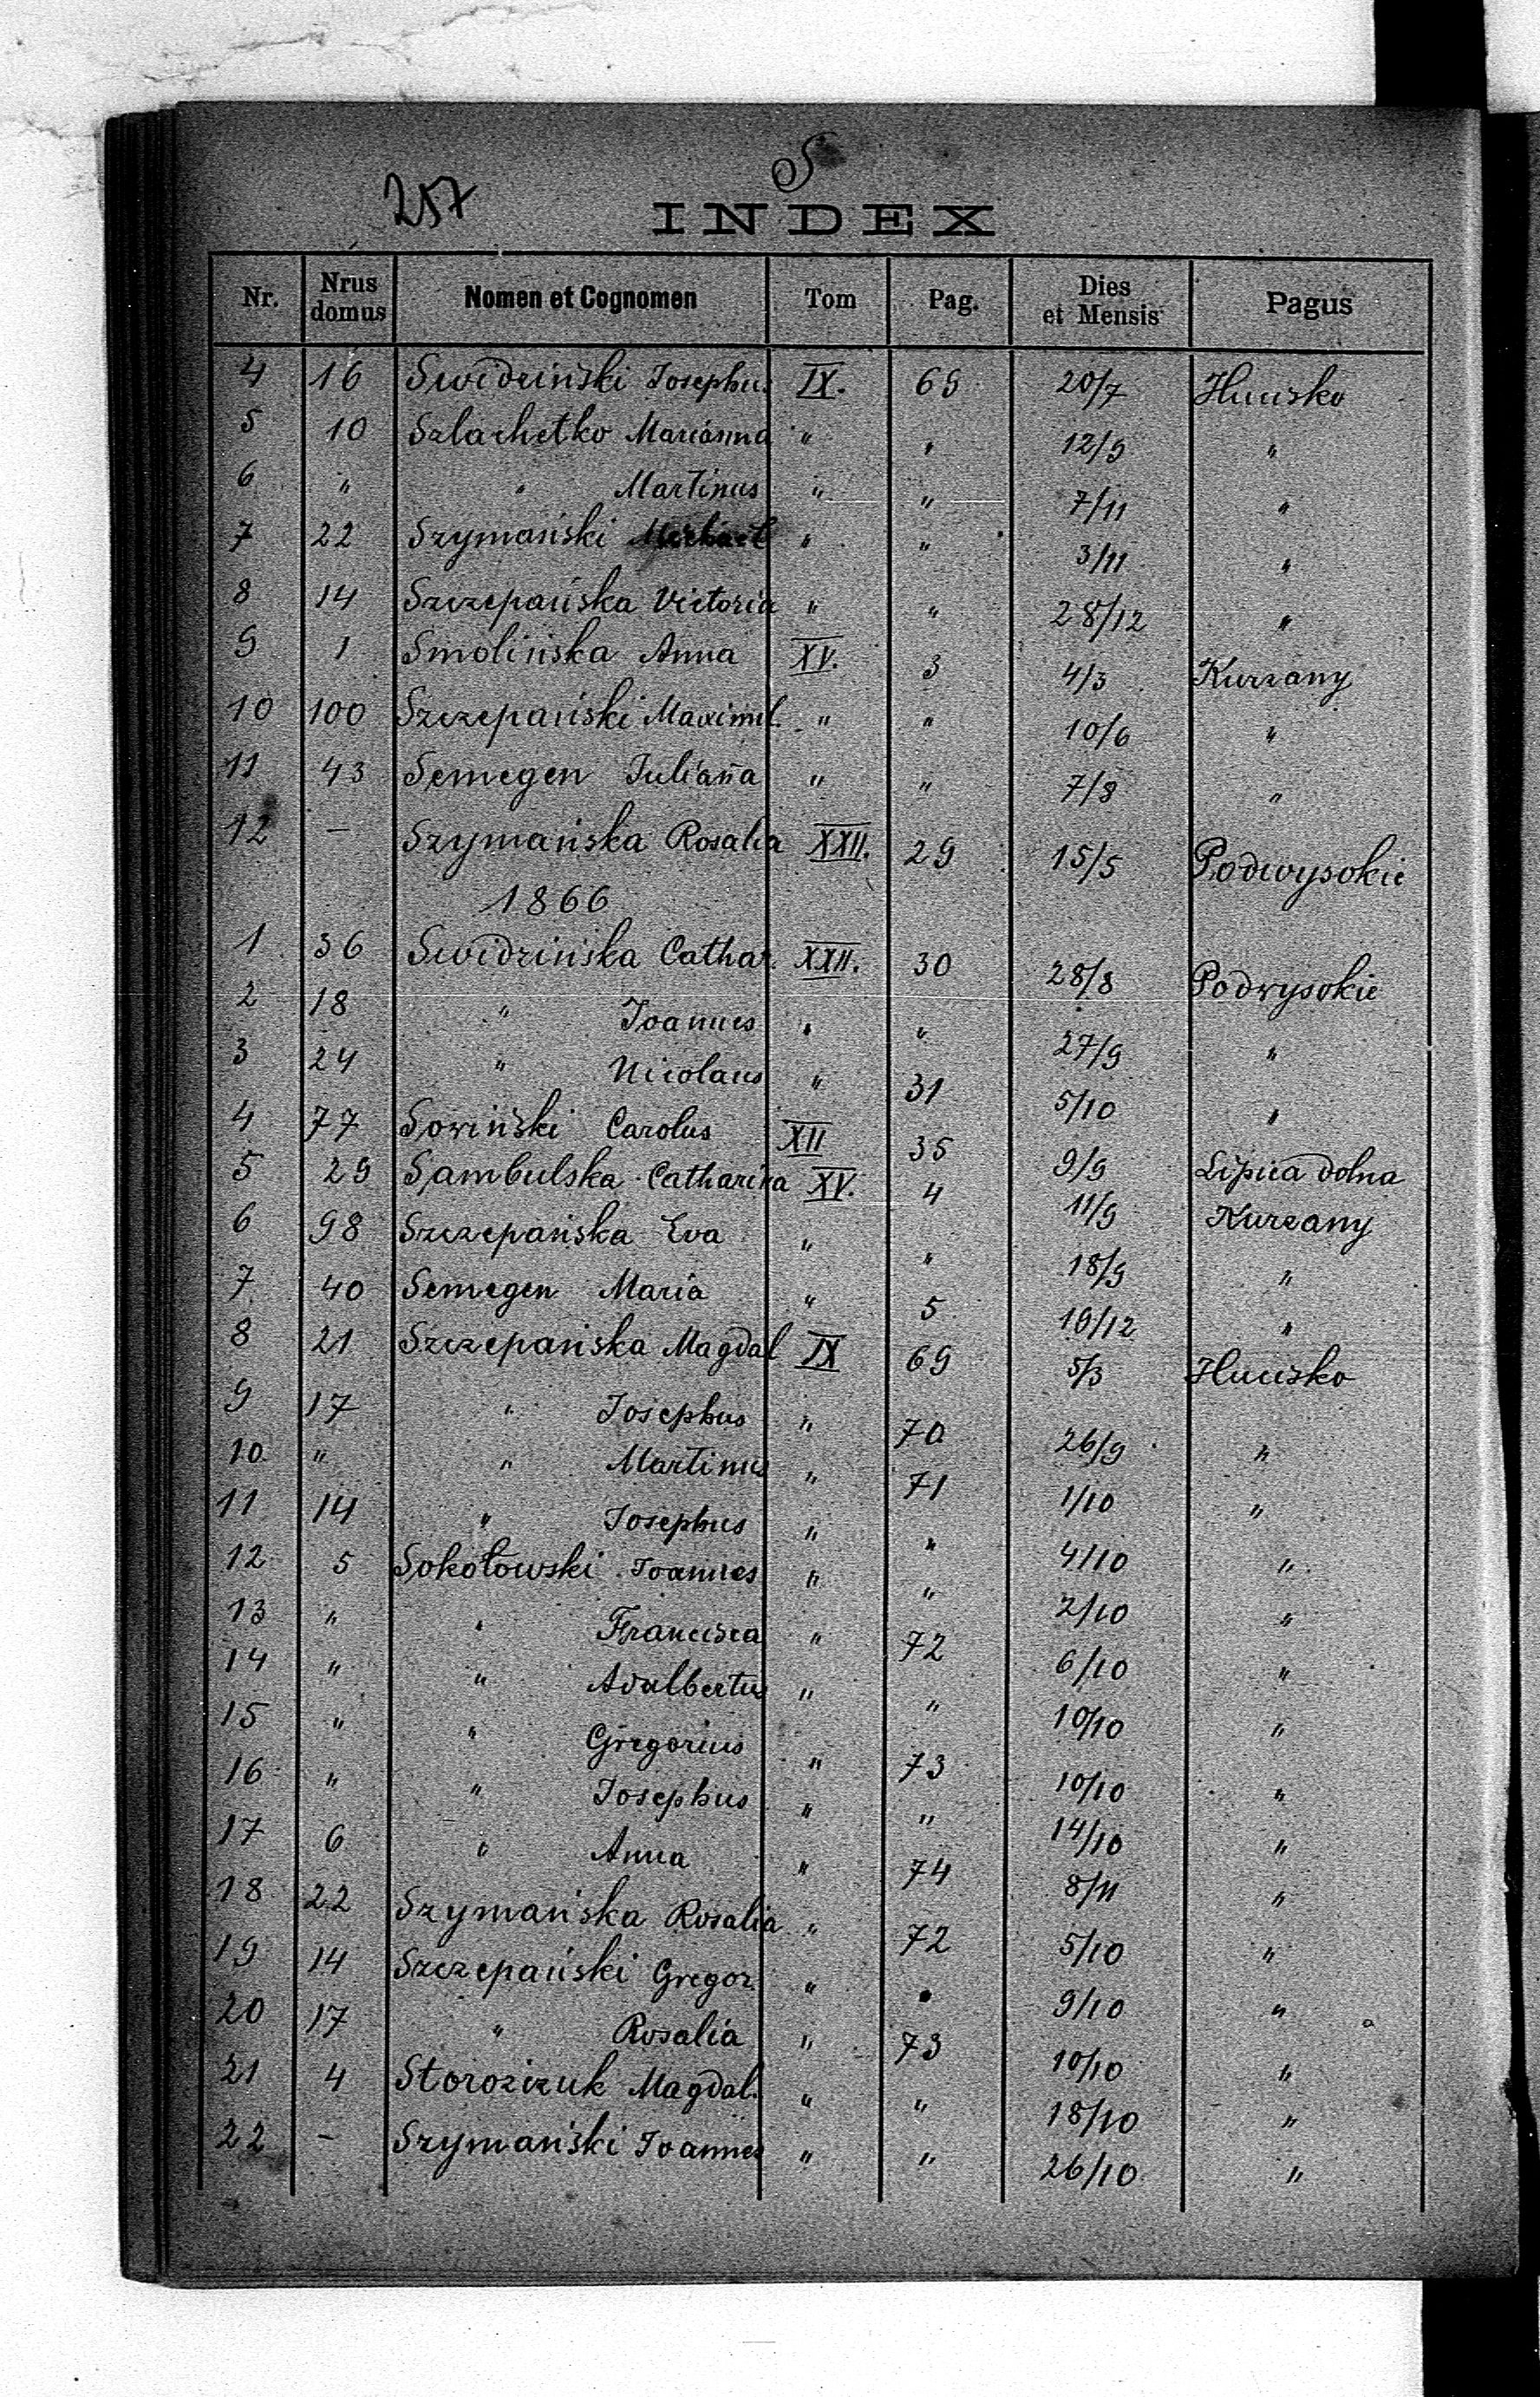 S
257
INDEX
Nr. Nrus domus Nomen et Cognomen Tom Pag. Dies et Mensis Pagus
4 16 Swidziński Josephu. IX. 69 20/7 Hucisko
5 10 Szlachetko Marianna " " 12/9 "
6 " " Martinus " " 7/11 "
7 22 Szymański Michael " " 3/11 "
8 14 Szczepańska Victoria " " 28/12 "
9 1 Smolińska Anna XV. 3 4/3 Kurzany
10 100 Szczepański Maximil. " " 10/6 "
11 43 Semegen Juliana " " 7/8 "
12 – Szymańska Rosalia XXII. 29 15/5 Podwysokie
1866
1 36 Swidzińska Cathar. XXII. 30 28/8 Podwysokie
2 18 " Joannes " " 27/9 "
3 24 " Nicolaus " 31 5/10 "
4 77 Sowiński Carolus XII 35 9/9 Lipica dolna
5 29 Sambulska Catharina XV. 4 11/9 Kurzany
6 98 Szczepańska Eva " " 18/9 "
7 40 Semegen Maria " 5 /12 "
8 21 Szczepańska Magdal IX 69 5/3 Hucisko
9 17 " Josephus " 70 26/9 "
10 " " Martinus " 71 1/10 "
11 14 " Josephus " " 4/10 "
12 5 Sokołowski Joannes " " 2/10 "
13 " " Francisca " 72 6/10 "
14 " " Adalbertus " " 10/10 "
15 " " Gregorius " 73 10/10 "
16 " " Josephus " " 14/10 "
17 6 " Anna " 74 8/11 "
18 22 Szymańska Rosalia " 72 5/10 "
19 14 Szczepański Gregor. " " 9/10 "
20 17 " Rosalia " 73 10/10 "
21 4 Storożczuk Magdal. " " 18/10 "
22 – Szymański Joannes " " 26/10 "